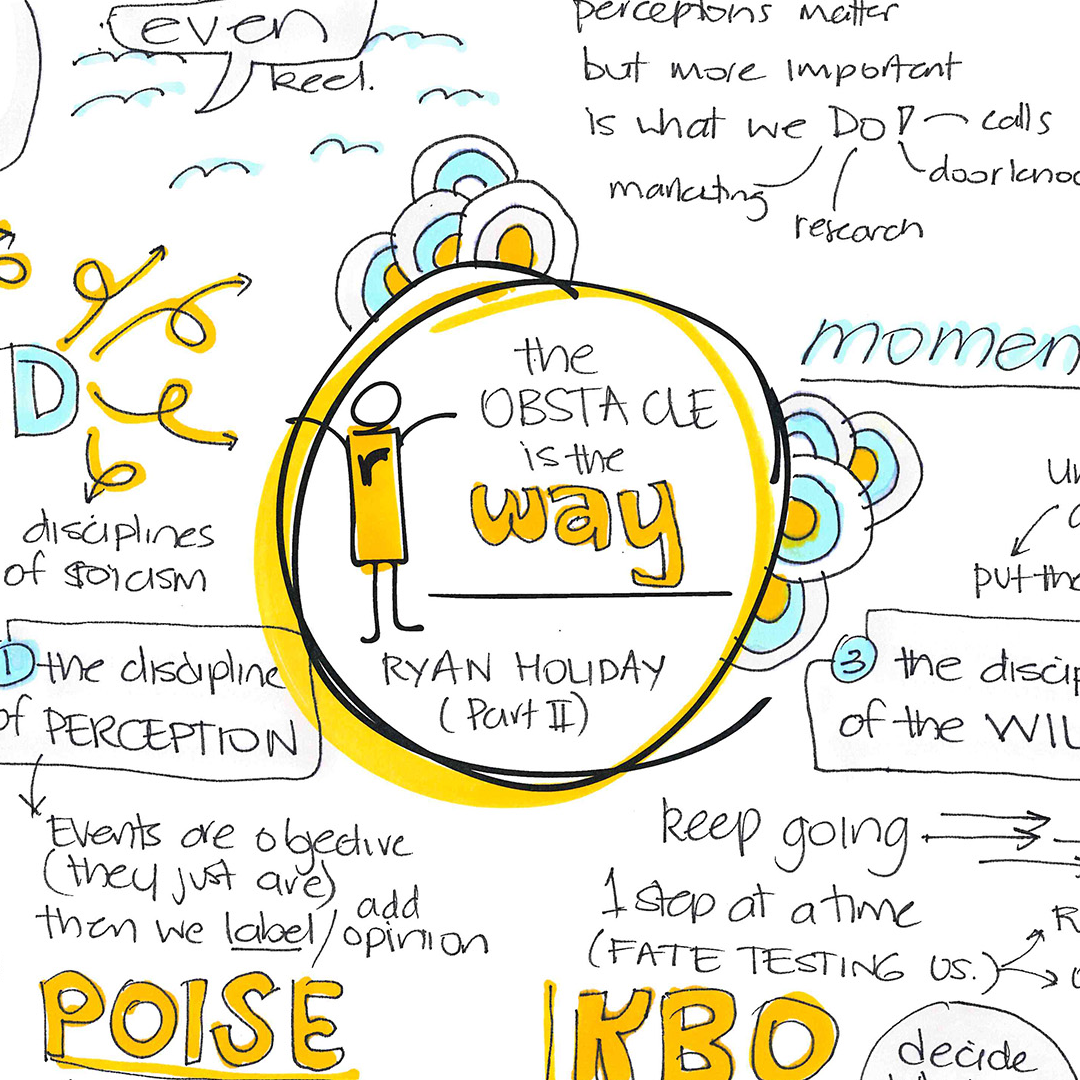 even
keel.
perceptions matter
but more important
is what we DO!
calls
marketing
research
D
disciplines
of stoicism
1 the discipline
of PERCEPTION
Events are objective
(they just are)
then we label/
add
opinion
POISE
the
OBSTACLE
is the
way
r
RYAN HOLIDAY
(Part II)
put the
3 the
of the
keep going
1 step at a time
(FATE TESTING US.)
R
KBO
decide